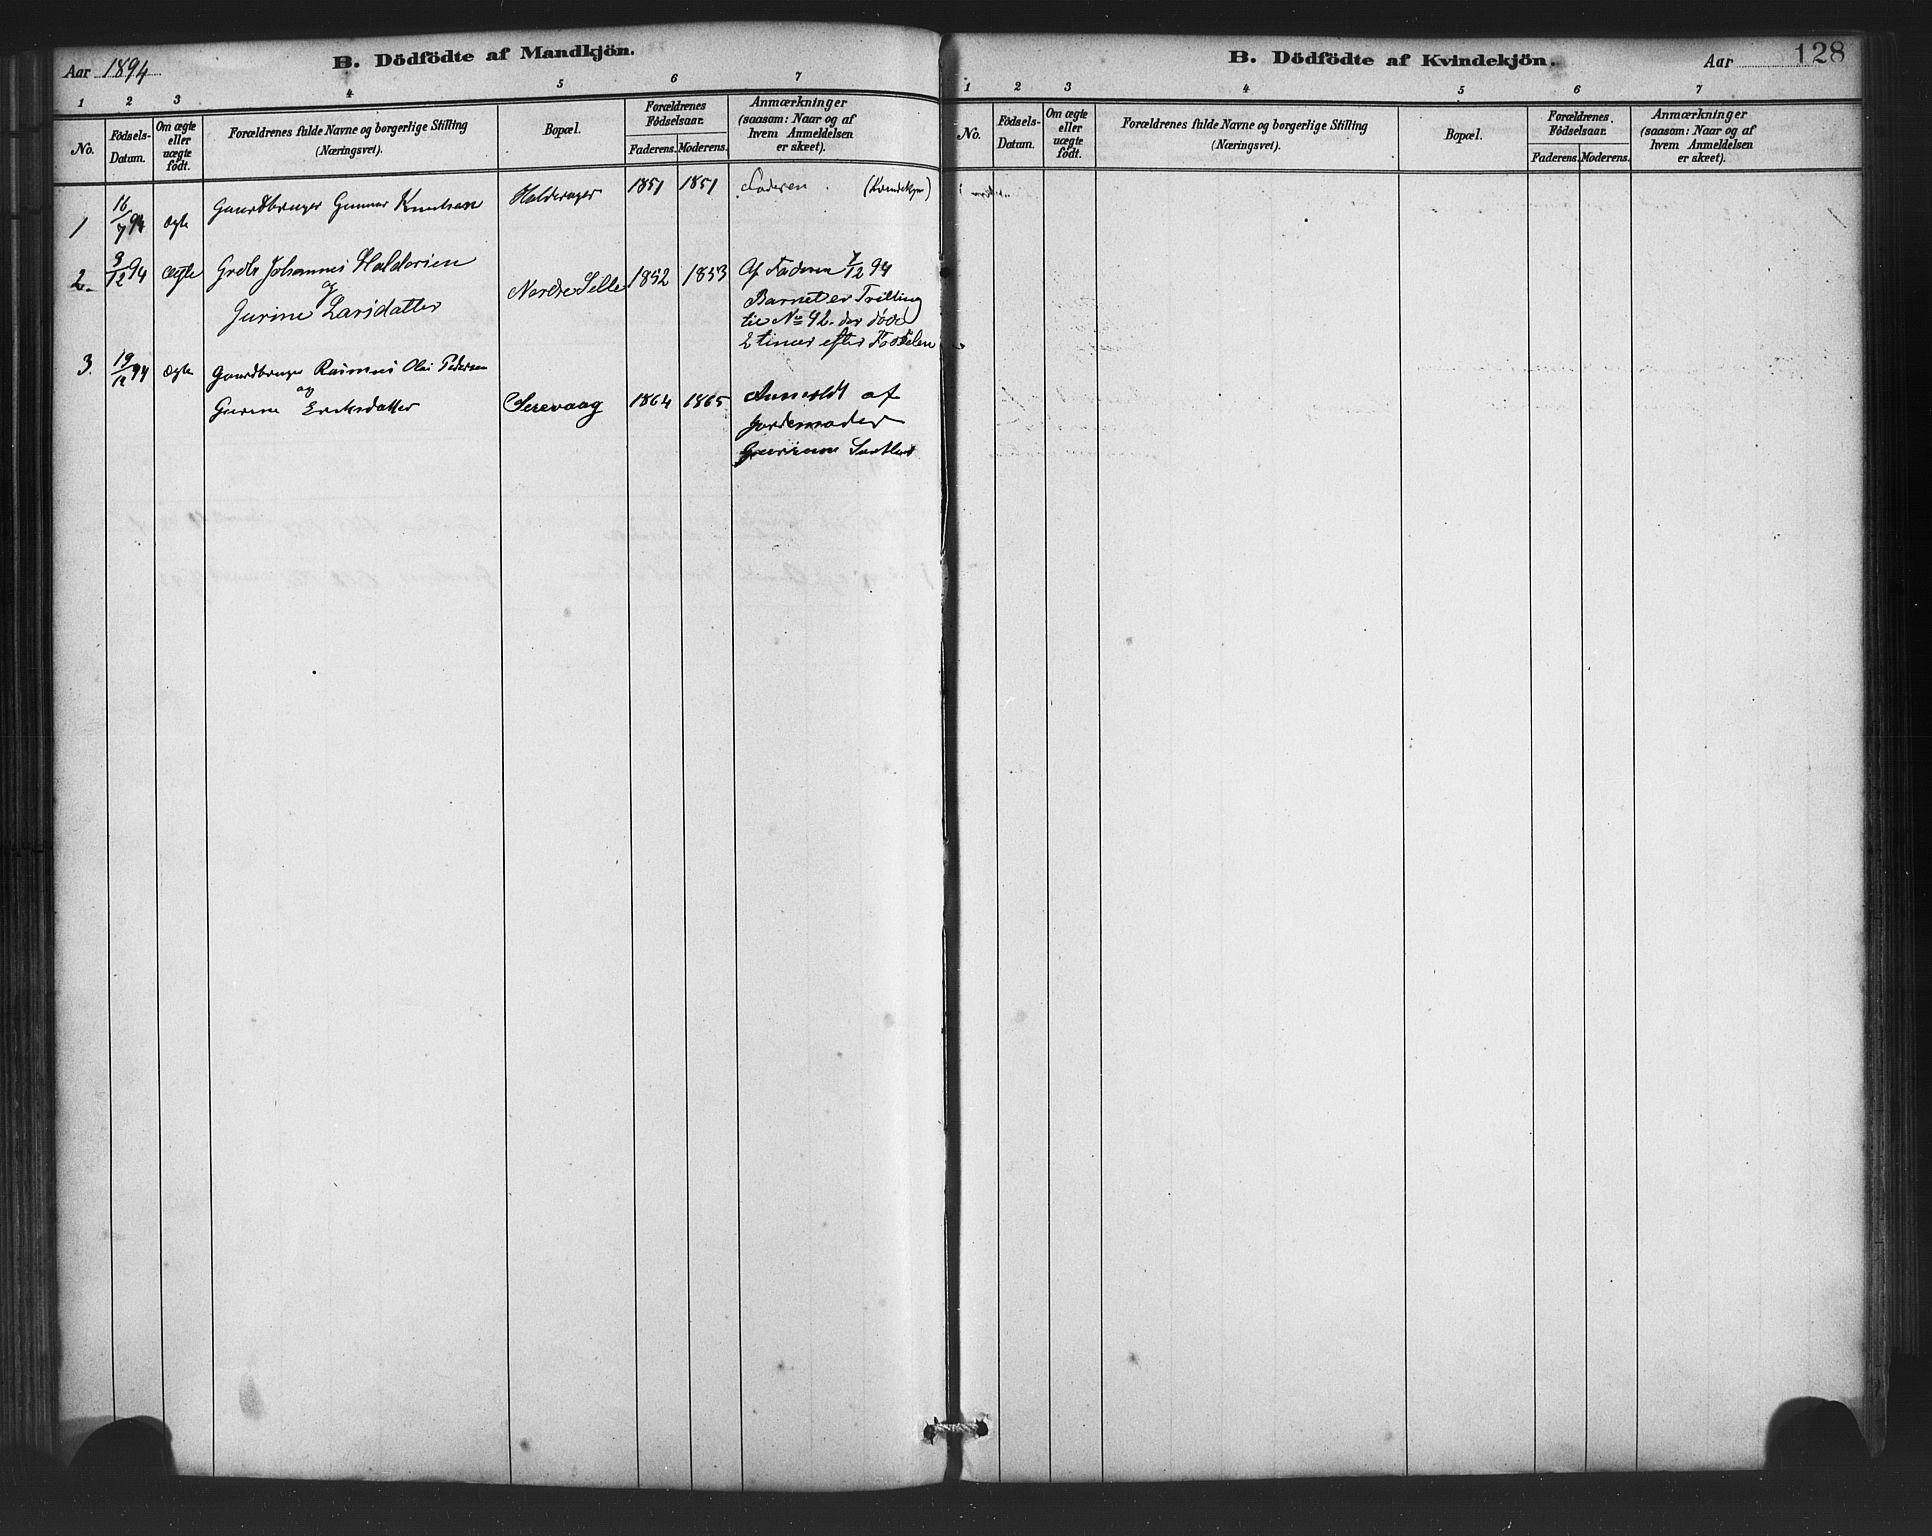 Aar 1894
B. Dödfödte af Mandkjön.
1 2 3 4 5 6 7
No.
Fødsels-Datum.
Om ægte eller uægte født.
Forældrenes fulde Navne og borgerlige Stilling
(Næringsvei).
Bopæl.
Forældrenes Fødselsaar.
Faderens. Moderens.
Anmærkninger
(saasom: Naar og af
hvem Anmeldelsen
er skeet).
1 16/7 94 ægte Gaardbruger Gunnar Knutsen Halderager 1851 1851 Faderen. (Kvindekjøn)
2. 3/12 94 ægte Grdbr Johannes Haldorsen
og
Gurine Larsdatter Nordre Selle 1852 1853 Af Faderen 7/12 94
Barnet er Trilling
til No 42. der døde
2 timer efter Fødselen
3. 19/12 94 ægte Gaardbruger Rasmus Olai Pedersen
og
Gurine Eriksdatter Serevaag 1864 1865 Anmeldt af
Jordemoder
Gurine
128
B. Dödfödte af Kvindekjön.
Aar
1 2 3 4 5 6 7
No.
Fødsels-Datum.
Om ægte eller uægte født.
Forældrenes fulde Navne og borgerlige Stilling
(Næringsvei).
Bopæl.
Forældrenes Fødselsaar.
Faderens. Moderens.
Anmærkninger
(saasom: Naar og af
hvem Anmeldelsen
er skeet).